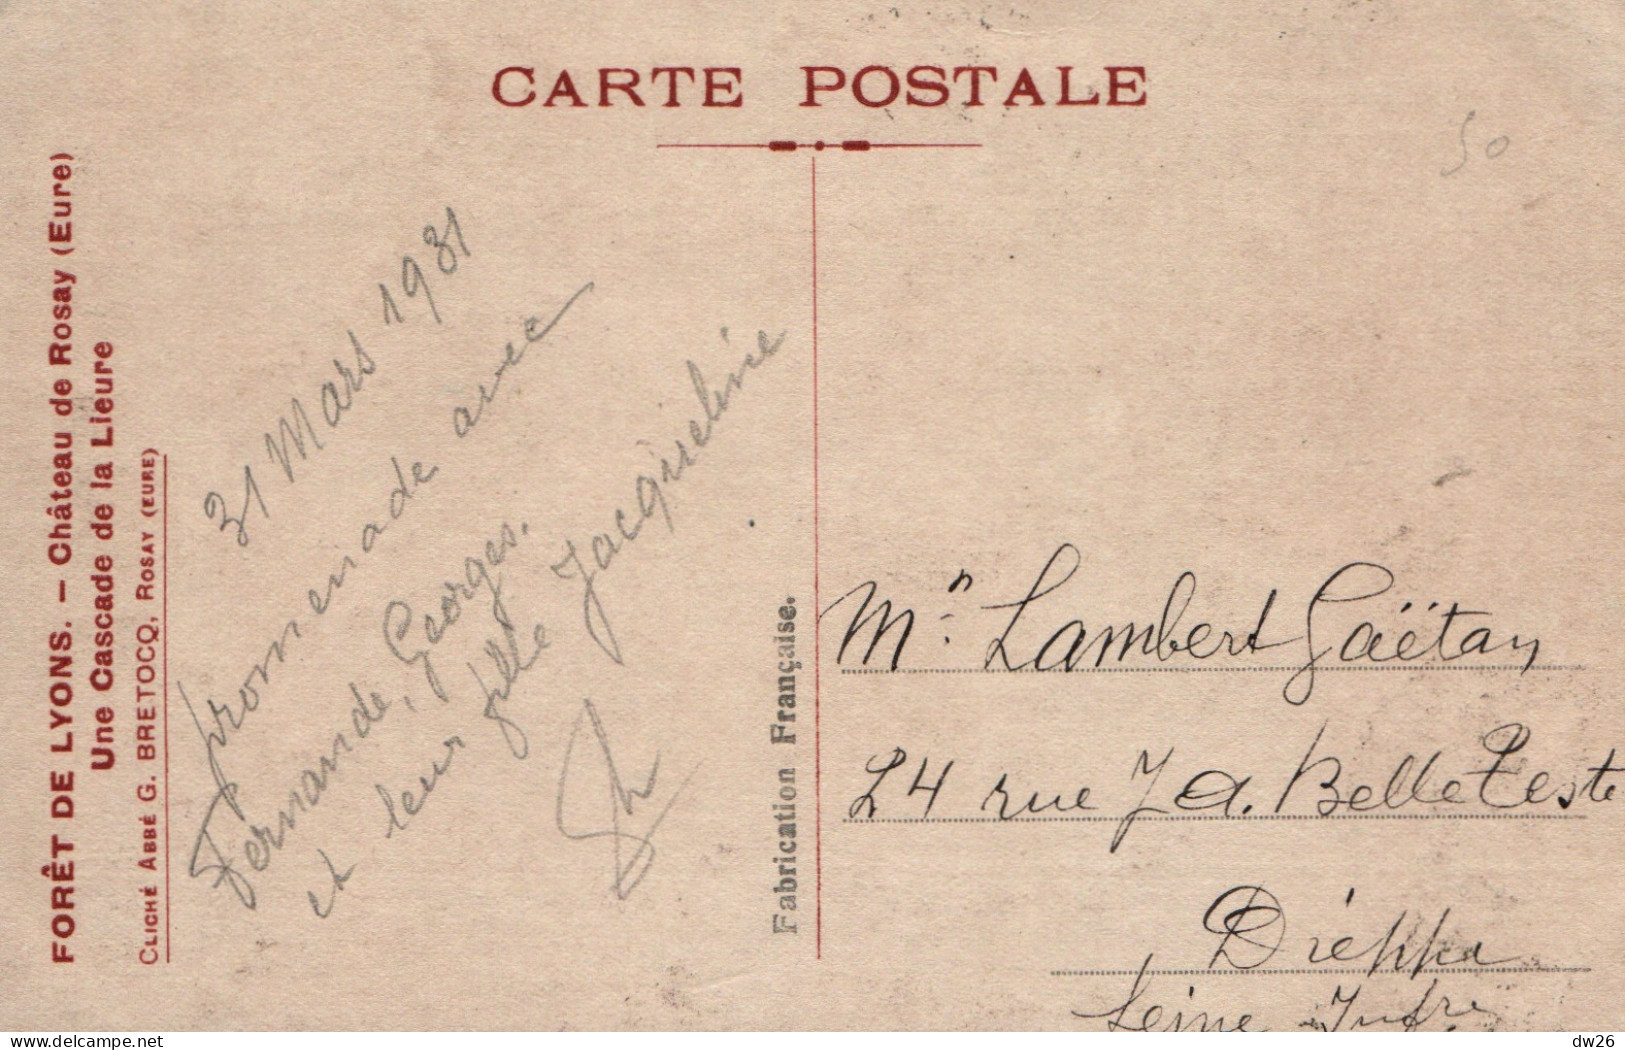 CARTE POSTALE
50
FORÊT DE LYONS. — Château de Rosay (Eure)
Une Cascade de la Lieure
CLICHÉ ABBÉ G. BRETOCQ, ROSAY (EURE)
31 Mars 1931
promenade avec
Fernande, Georges.
et leur fille Jacqueline
Fabrication Française.
Mr. Lambert Gaëtan
24 rue J A. Belle Teste
Dieppe
Seine Infre
delcampe.net
dw26